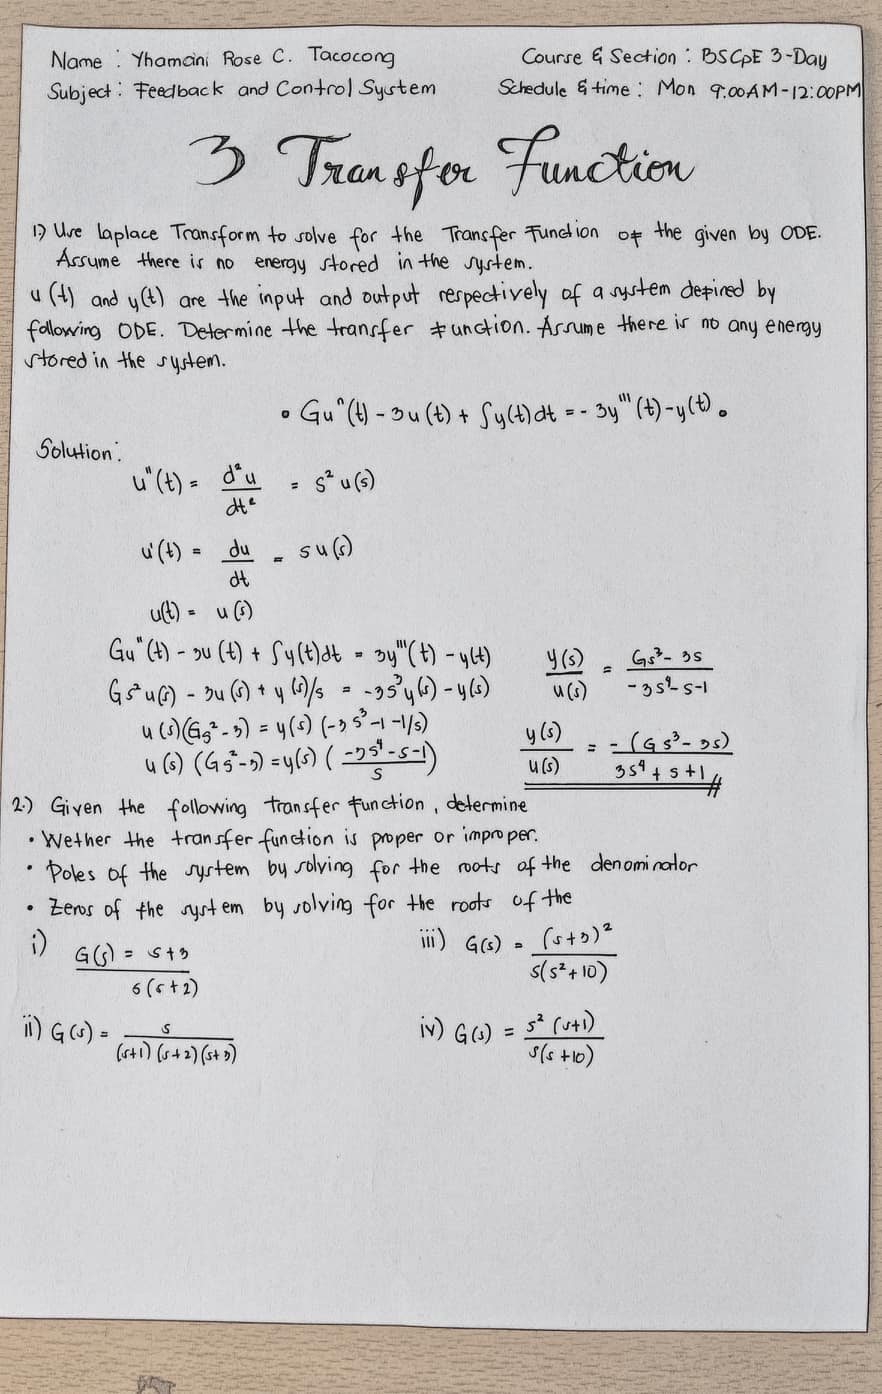 Name : Yhamaini Rose C. Tacocong
Course & Section : BSCpE 3-Day
Subject : Feedback and Control System
Schedule & time : Mon 9:00AM-12:00PM
3 Transfer Function
1.) Use laplace Transform to solve for the Transfer Function of the given by ODE.
Assume there is no energy stored in the system.
u(t) and y(t) are the input and output respectively of a system defined by
following ODE. Determine the transfer function. Assume there is no any energy
stored in the system.
• Gu"(t) - 3u(t) + ∫y(t)dt = - 3y'''(t) - y(t).
Solution:
u"(t) = d²u/dt² = s² u(s)
u'(t) = du/dt = s u(s)
u(t) = u(s)
Gu"(t) - 3u(t) + ∫y(t)dt = 3y'''(t) - y(t)
Gs²u(s) - 3u(s) + y(s)/s = -3s³y(s) - y(s)
u(s)(Gs²-3) = y(s)(-3s³-1-1/s)
u(s) (Gs²-3) = y(s) ( -3s⁴-s-1/s )
y(s)/u(s) = Gs³- 3s/-3s⁴-s-1
y(s)/u(s) = - (Gs³- 3s)/3s⁴ + s + 1 //
2.) Given the following transfer function, determine
• Wether the transfer function is proper or improper.
• Poles of the system by solving for the roots of the denominator
• Zeros of the system by solving for the roots of the
i) G(s) = s+3/6(s+2)
ii) G(s) = s/(s+1)(s+2)(s+3)
iii) G(s) = (s+3)²/s(s²+10)
iv) G(s) = s²(s+1)/s(s+10)